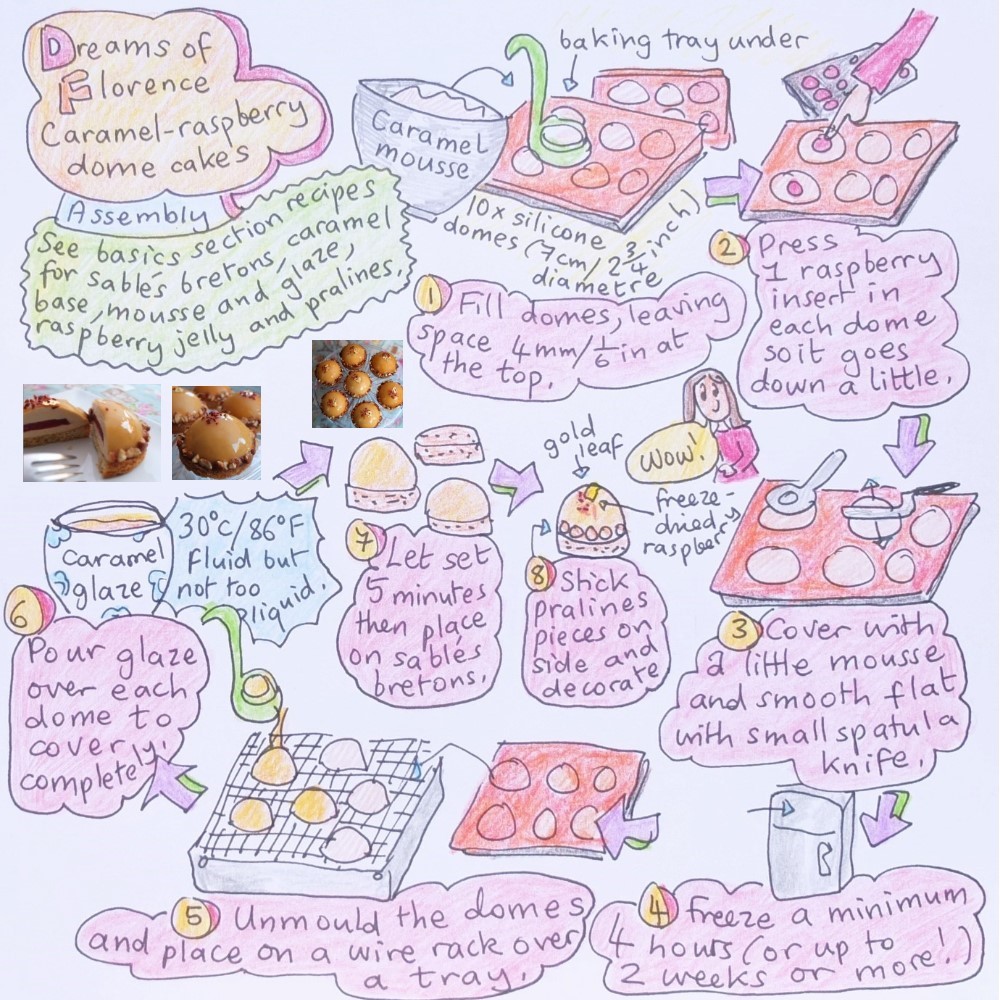 Dreams of
Florence
Caramel-raspberry
dome cakes
Assembly
See basics section recipes
for sablés bretons, caramel
base, mousse and glaze,
raspberry jelly and pralines.
Caramel
mousse
baking tray under
10x silicone
domes (7cm/2 3/4 inch)
diametre
1 Fill domes, leaving
space 4mm/1/6 in at
the top.
2 Press
1 raspberry
insert in
each dome
so it goes
down a little.
3 Cover with
a little mousse
and smooth flat
with small spatula
knife.
4 freeze a minimum
4 hours (or up to
2 weeks or more!)
5 Unmould the domes
and place on a wire rack over
a tray.
6
Pour glaze
over each
dome to
cover
completely.
Caramel
glaze
30°c/86°F
fluid but
not too
liquid.
7 Let set
5 minutes
then place
on sablés
bretons.
8 Stick
pralines
pieces on
side and
decorate
gold
leaf
freeze-
dried
raspberry
Wow!